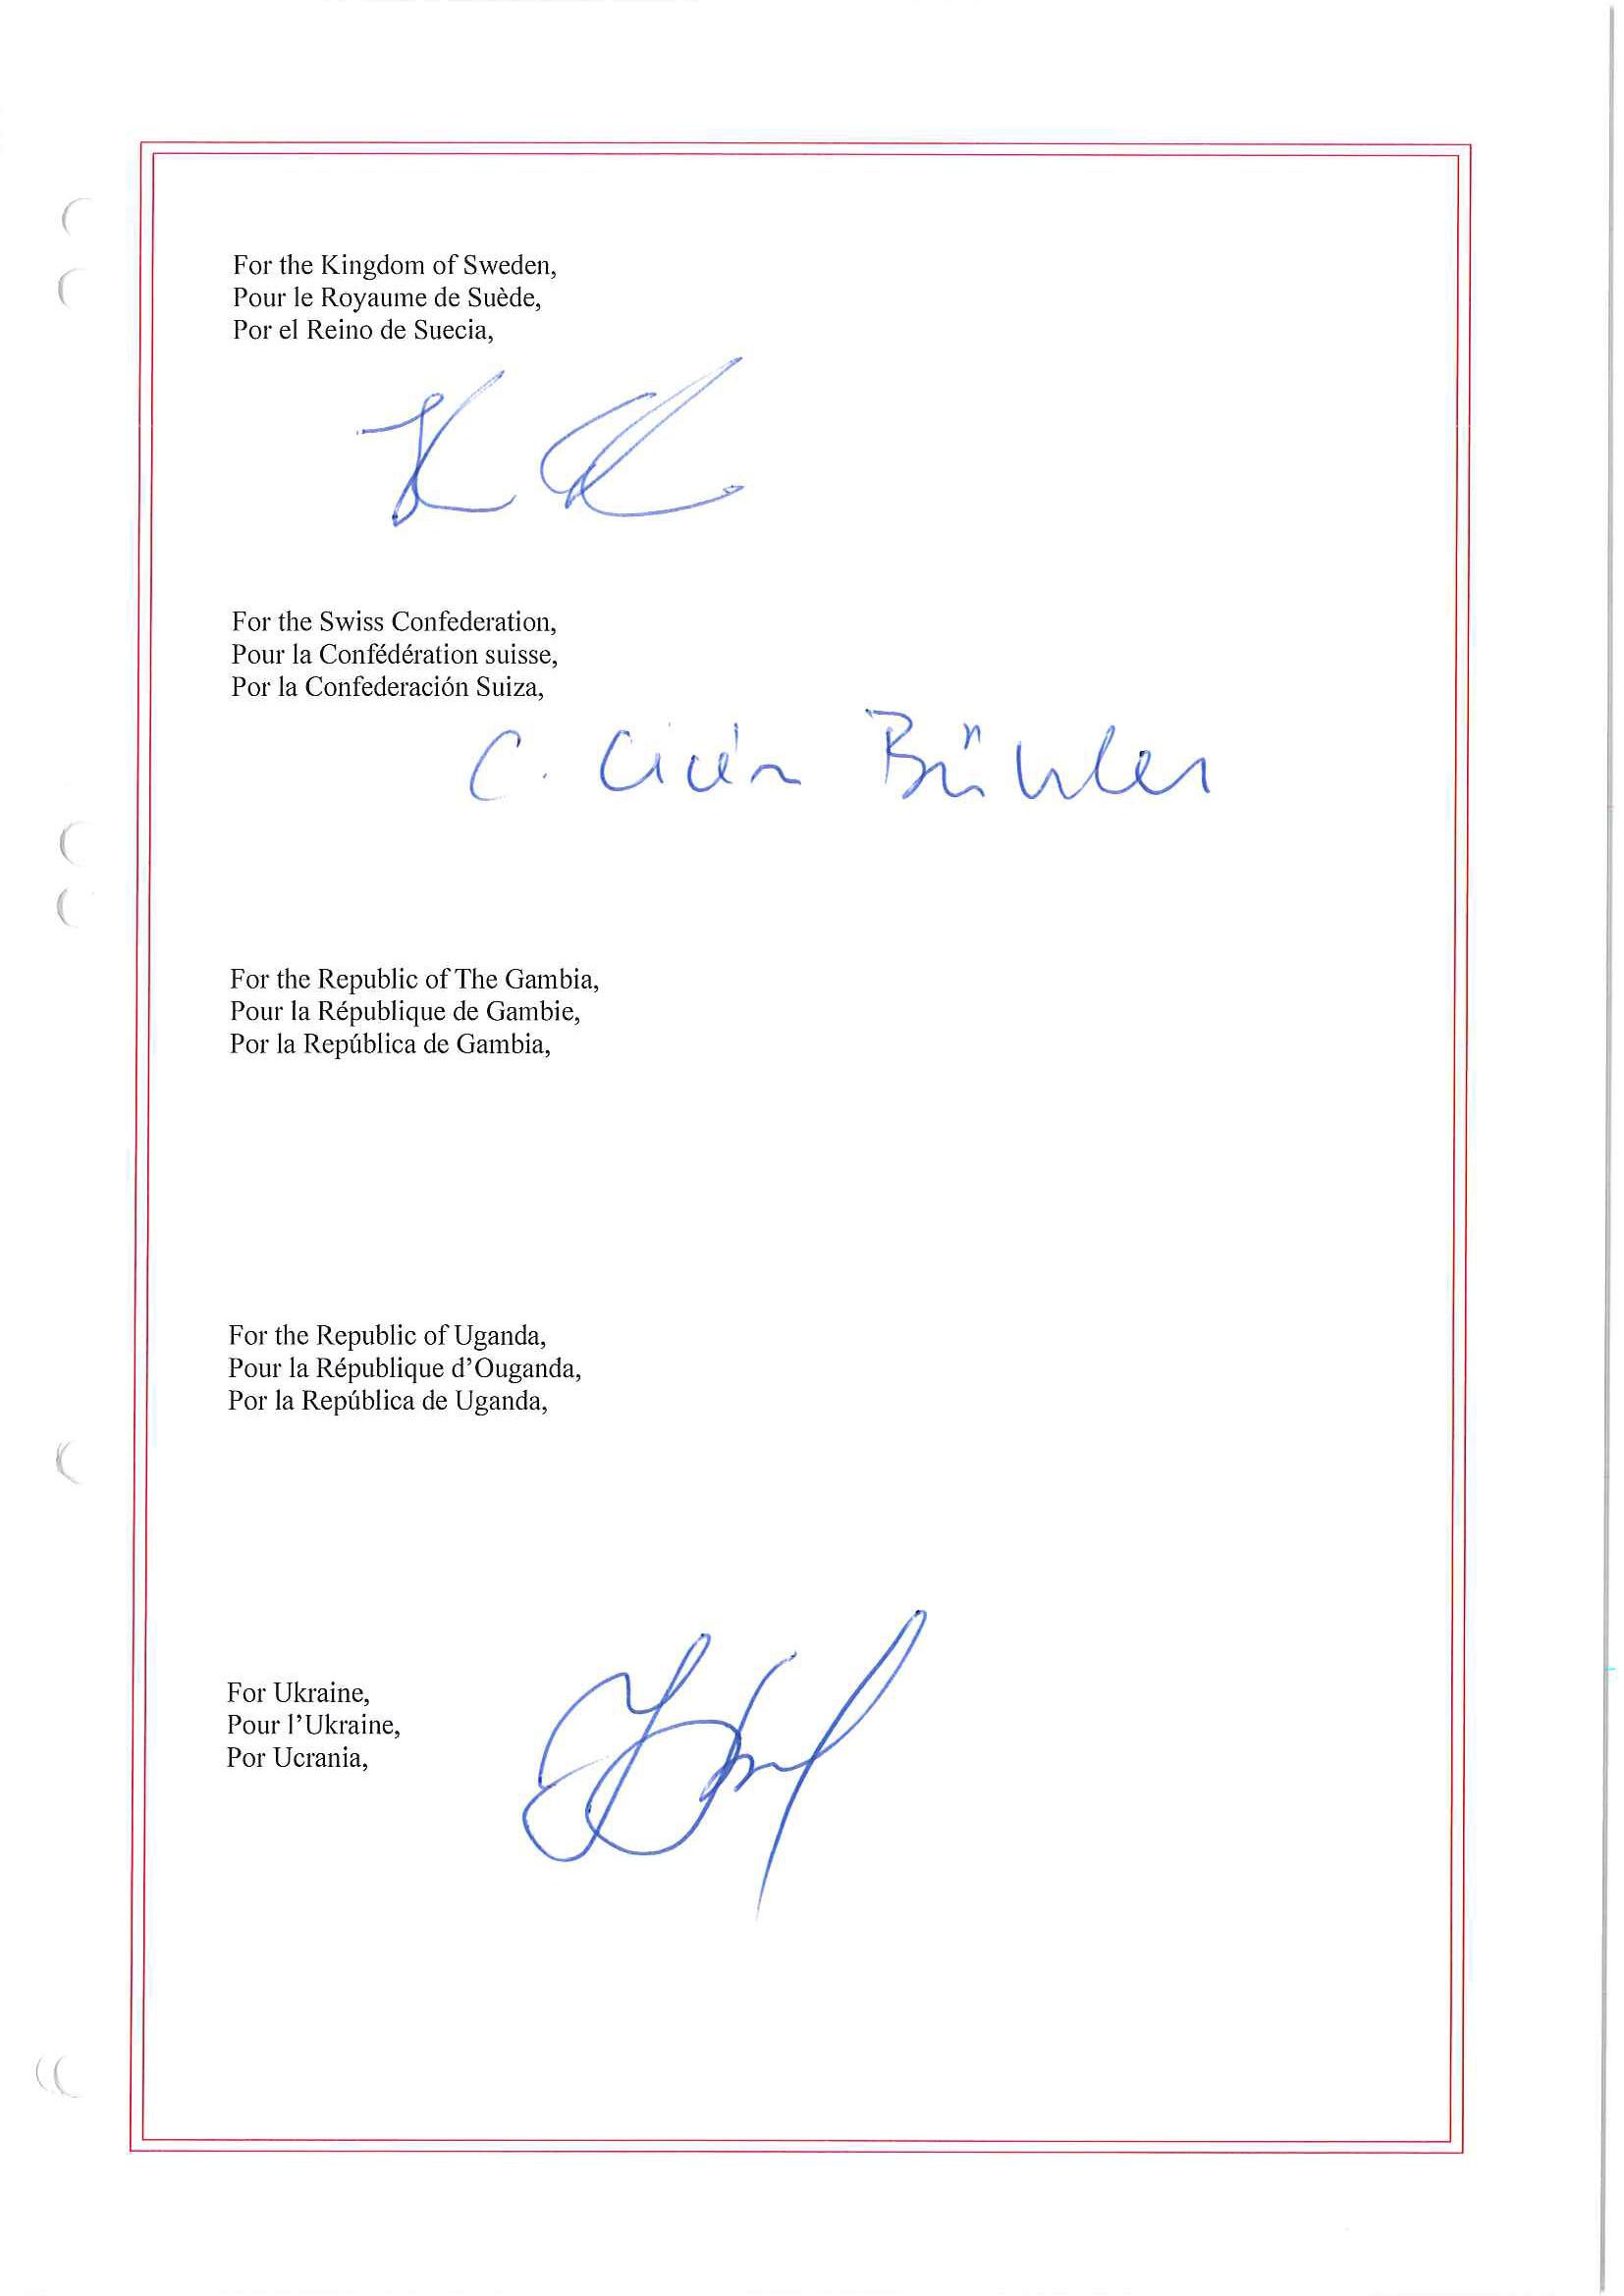 For the Kingdom of Sweden,
Pour le Royaume de Suède,
Por el Reino de Suecia,
For the Swiss Confederation,
Pour la Confédération suisse,
Por la Confederación Suiza,
C. Bühler
For the Republic of The Gambia,
Pour la République de Gambie,
Por la República de Gambia,
For the Republic of Uganda,
Pour la République d'Ouganda,
Por la República de Uganda,
For Ukraine,
Pour l'Ukraine,
Por Ucrania,